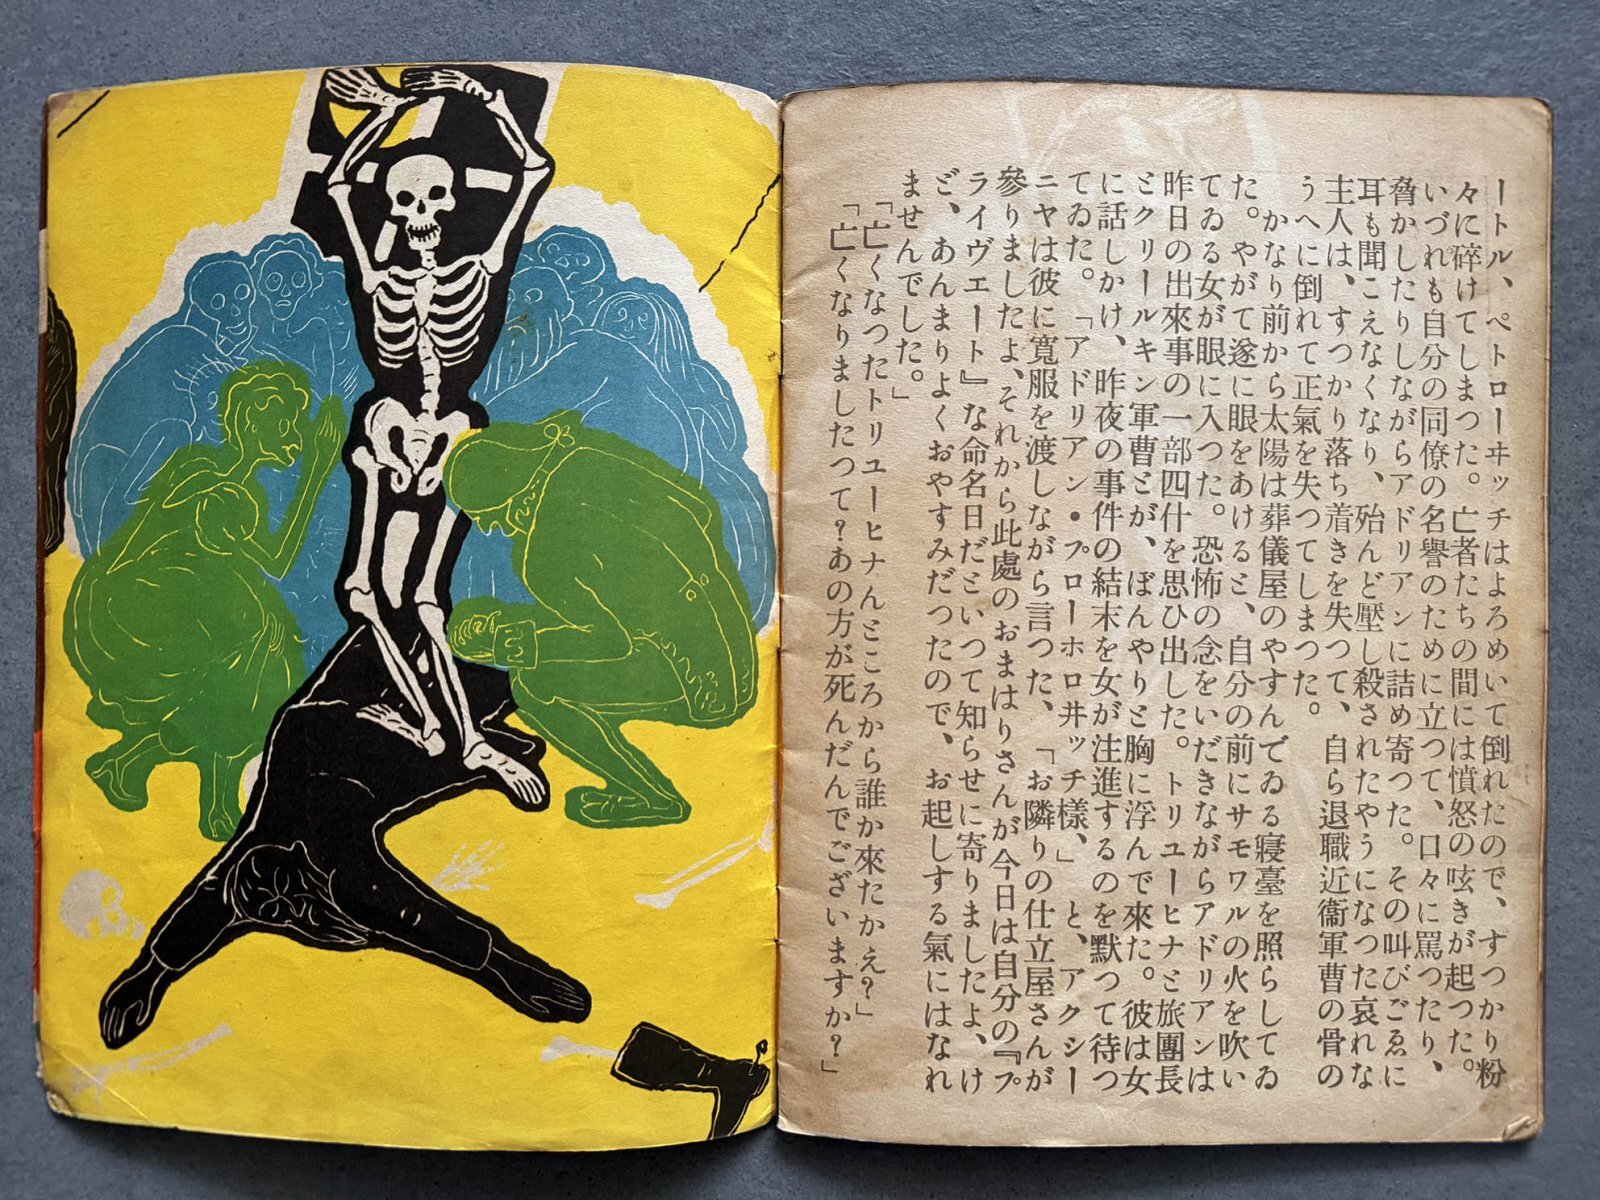 ートル、ペトローヰッチはよろめいて倒れたので、すつかり粉
々に碎けてしまつた。亡者たちの間には憤怒の呟きが起つた。
いづれも自分の同僚の名譽のために立つて、口々に罵つたり、
脅かしたりしながらアドリアンに詰め寄つた。その叫びごゑに
耳も聞こえなくなり、殆んど壓し殺されたやうになつた哀れな
主人は、すつかり落ち着きを失つて、自ら退職近衞軍曹の骨の
うへに倒れて正氣を失つてしまつた。
かなり前から太陽は葬儀屋のやすんでゐる寢臺を照らしてゐ
た。やがて遂に眼をあけると、自分の前にサモワルの火を吹い
てゐる女が眼に入つた。恐怖の念をいだきながらアドリアンは
昨日の出來事の一部四什を思ひ出した。トリユーヒナと旅團長
とクリールキン軍曹とが、ぼんやりと胸に浮んで來た。彼は女
に話しかけ、昨夜の事件の結末を女が注進するのを默つて待つ
てゐた。「アドリアン・プローホロ井ッチ樣、」と、アクシー
ニヤは彼に寬服を渡しながら言つた、「お隣りの仕立屋さんが
參りましたよ、それから此處のおまはりさんが今日は自分の『プ
ライヴエート』な命名日だといつて知らせに寄りましたよ、け
ど、あんまりよくおやすみだつたので、お起しする氣にはなれ
ませんでした。」
「亡くなつたトリユーヒナんところから誰か來たかえ？」
「亡くなりましたつて？あの方が死んだんでございますか？」